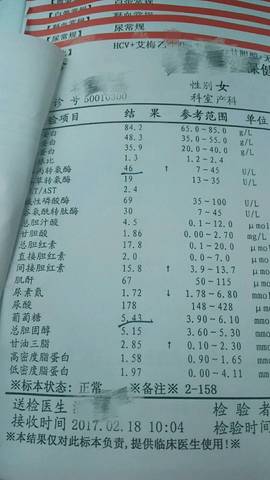 尿常规
HCV+艾梅乙
性别 女
诊 号 50010300
科室 产科
验项目 结 果 参考范围 单位
蛋白 84.2 65.0-85.0 g/L
蛋白 48.3 35.0-55.0 g/L
蛋白 35.9 20.0-40.0 g/L
1.3 1.2-2.4
丙转氨酶 46 ↑ 7-45 U/L
草转氨酶 19 13-35 U/L
AST/AST 2.4
碱性磷酸酶 69 35-100 U/L
谷氨酰转肽酶 30 7-45 U/L
总胆汁酸 4.5 0.1-12.0 μmol
甘胆酸 1.86 0.00-2.70 mg/L
总胆红素 17.8 0.1-20.0 μmol
直接胆红素 2.0 0.0-7.0 μmol
间接胆红素 15.8 ↑ 3.9-13.7 μmol
肌酐 67 50-115 μmol
尿素氮 1.72 ↓ 1.78-6.80 mmol
尿酸 178 148-428 μmol
葡萄糖 5.43 3.90-6.10 mmol
总胆固醇 5.15 3.60-5.30 mmol
甘油三脂 2.85 ↑ 0.10-2.30 mmo
高密度脂蛋白 1.58 0.90-1.65 mmo
低密度脂蛋白 1.97 0.00-4.11 mmo
※标本状态: 正常 ※备注※ 2-158
送检医生 检 验 者
接收时间 2017.02.18 10:04 检验时
※本结果仅对此标本负责,提供临床医生使用!※